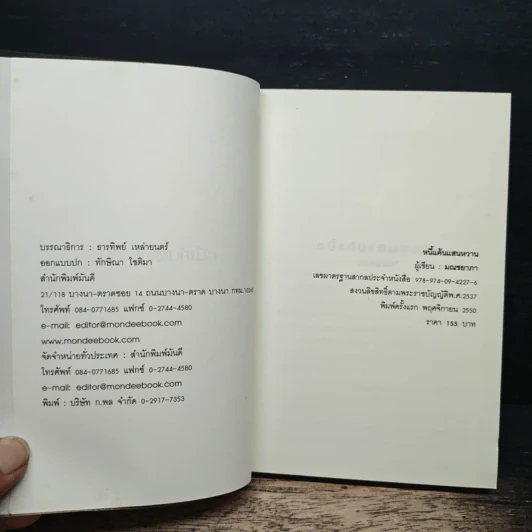 บรรณาธิการ : ธารทิพย์ เหล่ายนตร์
ออกแบบปก : ทักษิณา โชติมา
สำนักพิมพ์มันดี
21/118 บางนา-ตราดซอย 14 ถนนบางนา-ตราด บางนา
โทรศัพท์ 084-0771685 แฟกซ์ 0-2744-4580
e-mail: editor@mondeebook.com
www.mondeebook.com
จัดจำหน่ายทั่วประเทศ : สำนักพิมพ์มันดี
โทรศัพท์ 084-0771685 แฟกซ์ 0-2744-4580
e-mail: editor@mondeebook.com
พิมพ์ : บริษัท ก.พล จำกัด 0-2917-7353
หนี้แค้นแสนหวาน
ผู้เขียน : มณชยาภา
เลขมาตรฐานสากลประจำหนังสือ 978-974-09-4227-6
สงวนลิขสิทธิ์ตามพระราชบัญญัติพ.ศ.2537
พิมพ์ครั้งแรก พฤศจิกายน 2550
ราคา 155 บาท